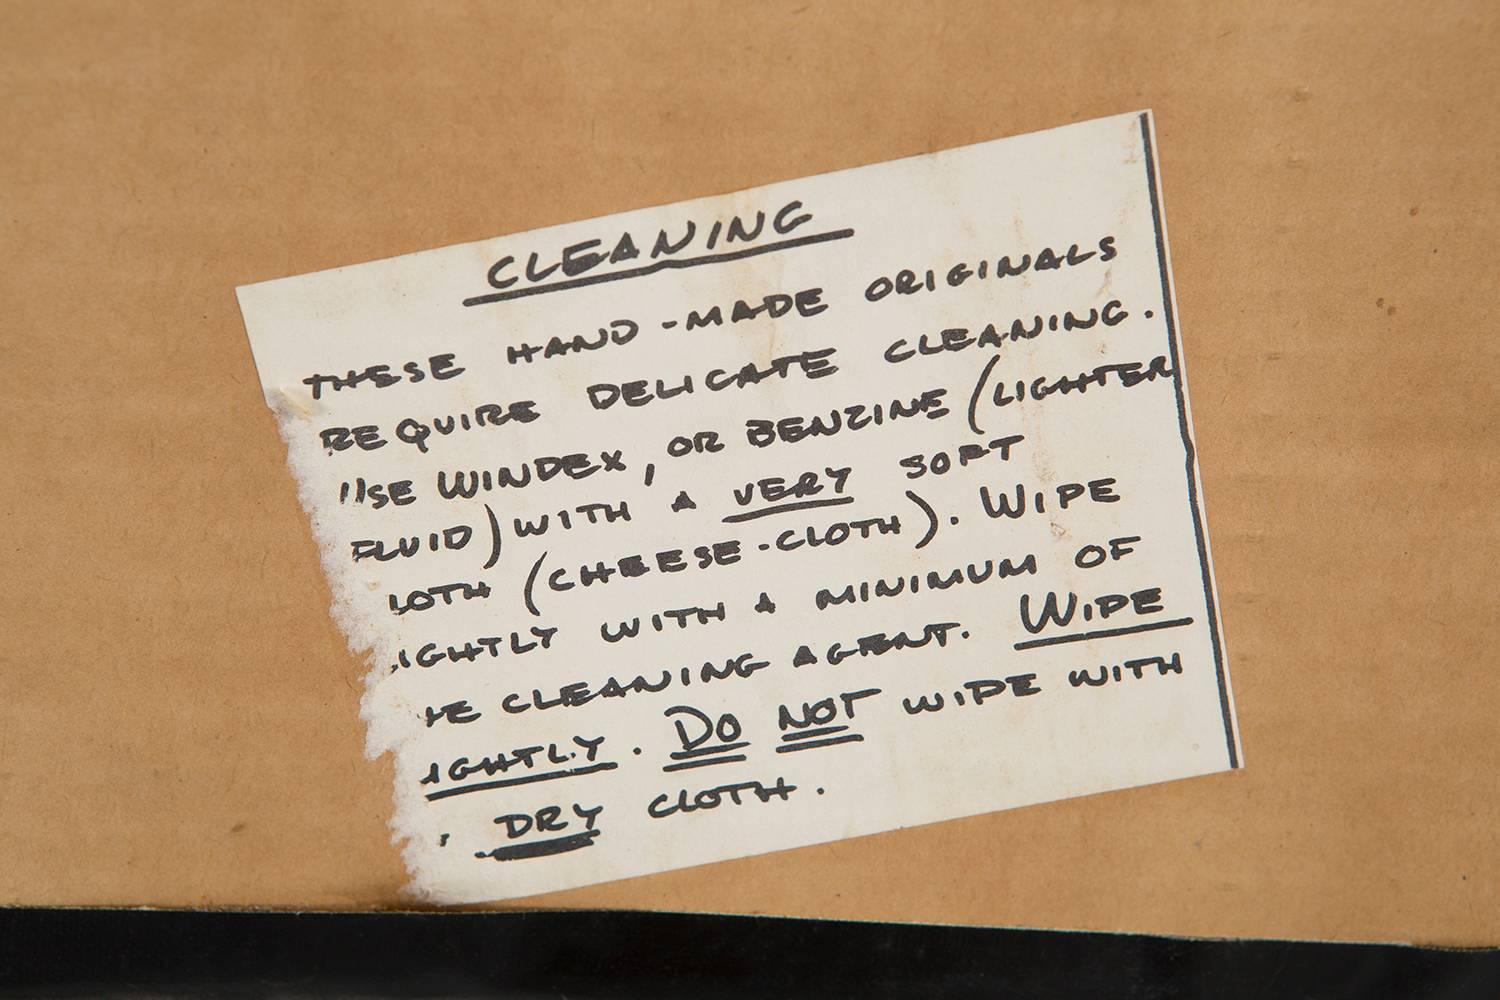 CLEANING
THESE HAND-MADE ORIGINALS
REQUIRE DELICATE CLEANING.
USE WINDEX, OR BENZINE (LIGHTER
FLUID) WITH A VERY SOFT
LOTH (CHEESE-CLOTH). WIPE
IGHTLY WITH A MINIMUM OF
HE CLEANING AGENT. WIPE
IGHTLY. DO NOT WIPE WITH
DRY CLOTH.